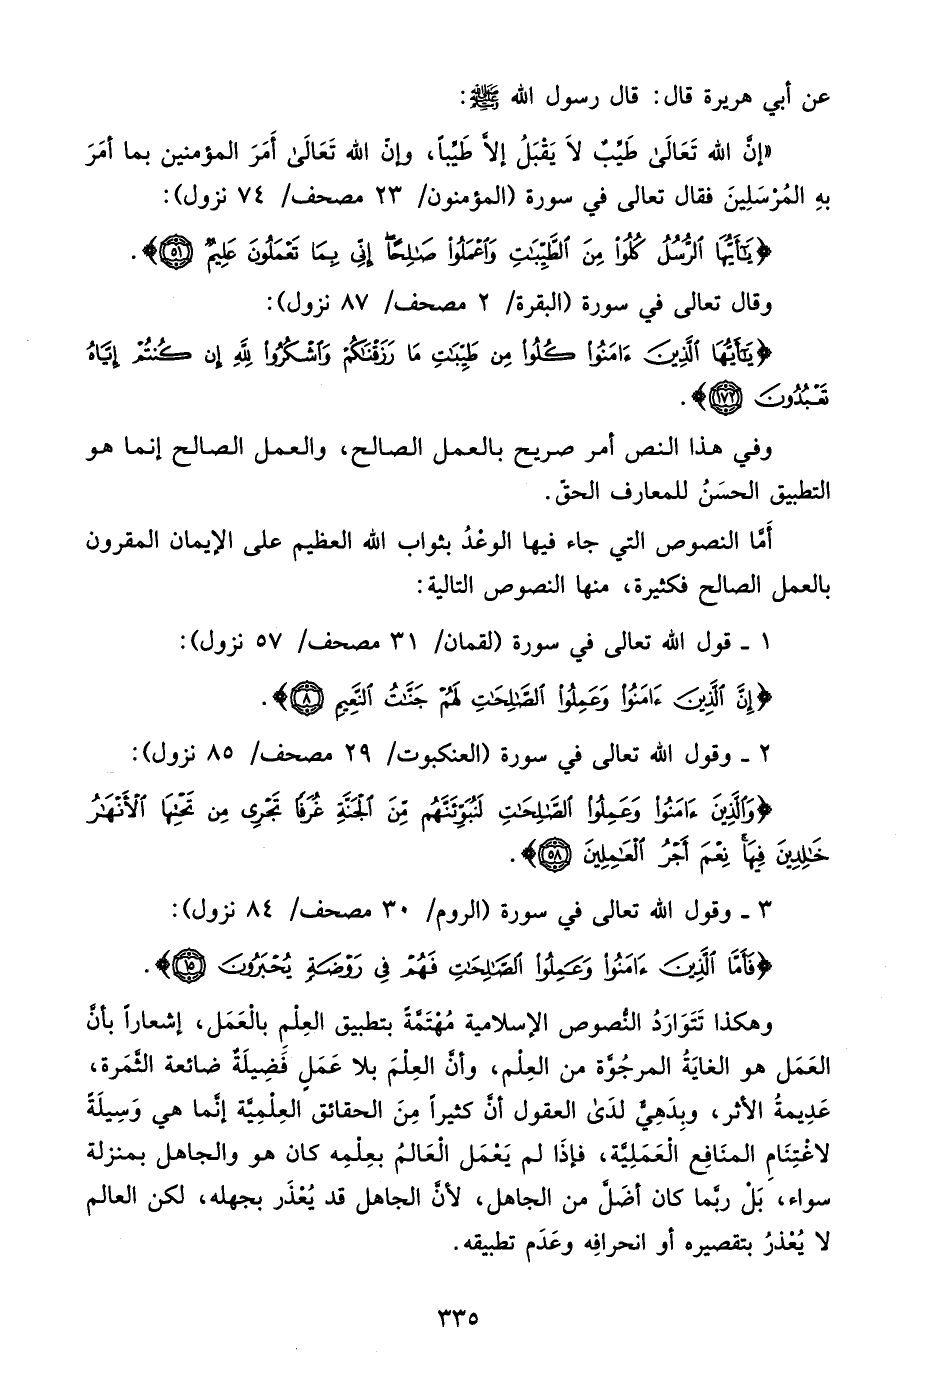 عن أبي هريرة قال: قال رسول الله ﷺ:
«إنَّ الله تَعَالَىٰ طَيِّبٌ لاَ يَقْبَلُ إلاَّ طَيِّباً، وإنّ الله تَعَالَىٰ أَمَرَ المؤمنين بما أمَرَ
بهِ المُرْسَلِينَ فقال تعالى في سورة (المؤمنون/ ٢٣ مصحف/ ٧٤ نزول):
﴿يَٰٓأَيُّهَا ٱلرُّسُلُ كُلُوا۟ مِنَ ٱلطَّيِّبَٰتِ وَٱعْمَلُوا۟ صَٰلِحًا ۖ إِنِّى بِمَا تَعْمَلُونَ عَلِيمٌ ۝٥١﴾.
وقال تعالى في سورة (البقرة/ ٢ مصحف/ ٨٧ نزول):
﴿يَٰٓأَيُّهَا ٱلَّذِينَ ءَامَنُوا۟ كُلُوا۟ مِن طَيِّبَٰتِ مَا رَزَقْنَٰكُمْ وَٱشْكُرُوا۟ لِلَّهِ إِن كُنتُمْ إِيَّاهُ
تَعْبُدُونَ ۝١٧٢﴾.
وفي هذا النص أمر صريح بالعمل الصالح، والعمل الصالح إنما هو
التطبيق الحسَنُ للمعارف الحقّ.
أَمَّا النصوص التي جاء فيها الوعْدُ بثواب الله العظيم على الإيمان المقرون
بالعمل الصالح فكثيرة، منها النصوص التالية:
١ ـ قول الله تعالى في سورة (لقمان/ ٣١ مصحف/ ٥٧ نزول):
﴿إِنَّ ٱلَّذِينَ ءَامَنُوا۟ وَعَمِلُوا۟ ٱلصَّٰلِحَٰتِ لَهُمْ جَنَّٰتُ ٱلنَّعِيمِ ۝٨﴾.
٢ ـ وقول الله تعالى في سورة (العنكبوت/ ٢٩ مصحف/ ٨٥ نزول):
﴿وَٱلَّذِينَ ءَامَنُوا۟ وَعَمِلُوا۟ ٱلصَّٰلِحَٰتِ لَنُبَوِّئَنَّهُم مِّنَ ٱلْجَنَّةِ غُرَفًا تَجْرِى مِن تَحْتِهَا ٱلْأَنْهَٰرُ
خَٰلِدِينَ فِيهَا ۚ نِعْمَ أَجْرُ ٱلْعَٰمِلِينَ ۝٥٨﴾.
٣ ـ وقول الله تعالى في سورة (الروم/ ٣٠ مصحف/ ٨٤ نزول):
﴿فَأَمَّا ٱلَّذِينَ ءَامَنُوا۟ وَعَمِلُوا۟ ٱلصَّٰلِحَٰتِ فَهُمْ فِى رَوْضَةٍ يُحْبَرُونَ ۝١٥﴾.
وهكذا تَتَوَارَدُ النُّصوص الإسلامية مُهْتَمَّةً بتطبيق العِلْم بالْعَمَل، إشعاراً بأنَّ
العَمَل هو الغايَةُ المرجُوَّة من العِلْم، وأنَّ العِلْمَ بلا عَمَلٍ فَضِيلَةٌ ضائعة الثَّمَرة،
عَدِيمةُ الأثر، وبِدَهِيٌّ لدَىٰ العقول أنَّ كثيراً مِنَ الحقائق العِلْمِيَّة إنَّما هي وَسِيلَةٌ
لاغْتِنَامِ المنَافِع الْعَمَلِيَّة، فإذَا لم يَعْمَل الْعَالمُ بعِلْمِه كان هو والجاهل بمنزلة
سواء، بَلْ ربَّما كان أضَلَّ من الجاهل، لأنَّ الجاهل قد يُعْذَر بجهله، لكن العالم
لا يُعْذرُ بتقصيره أو انحرافِه وعَدَم تطبيقه.
٣٣٥